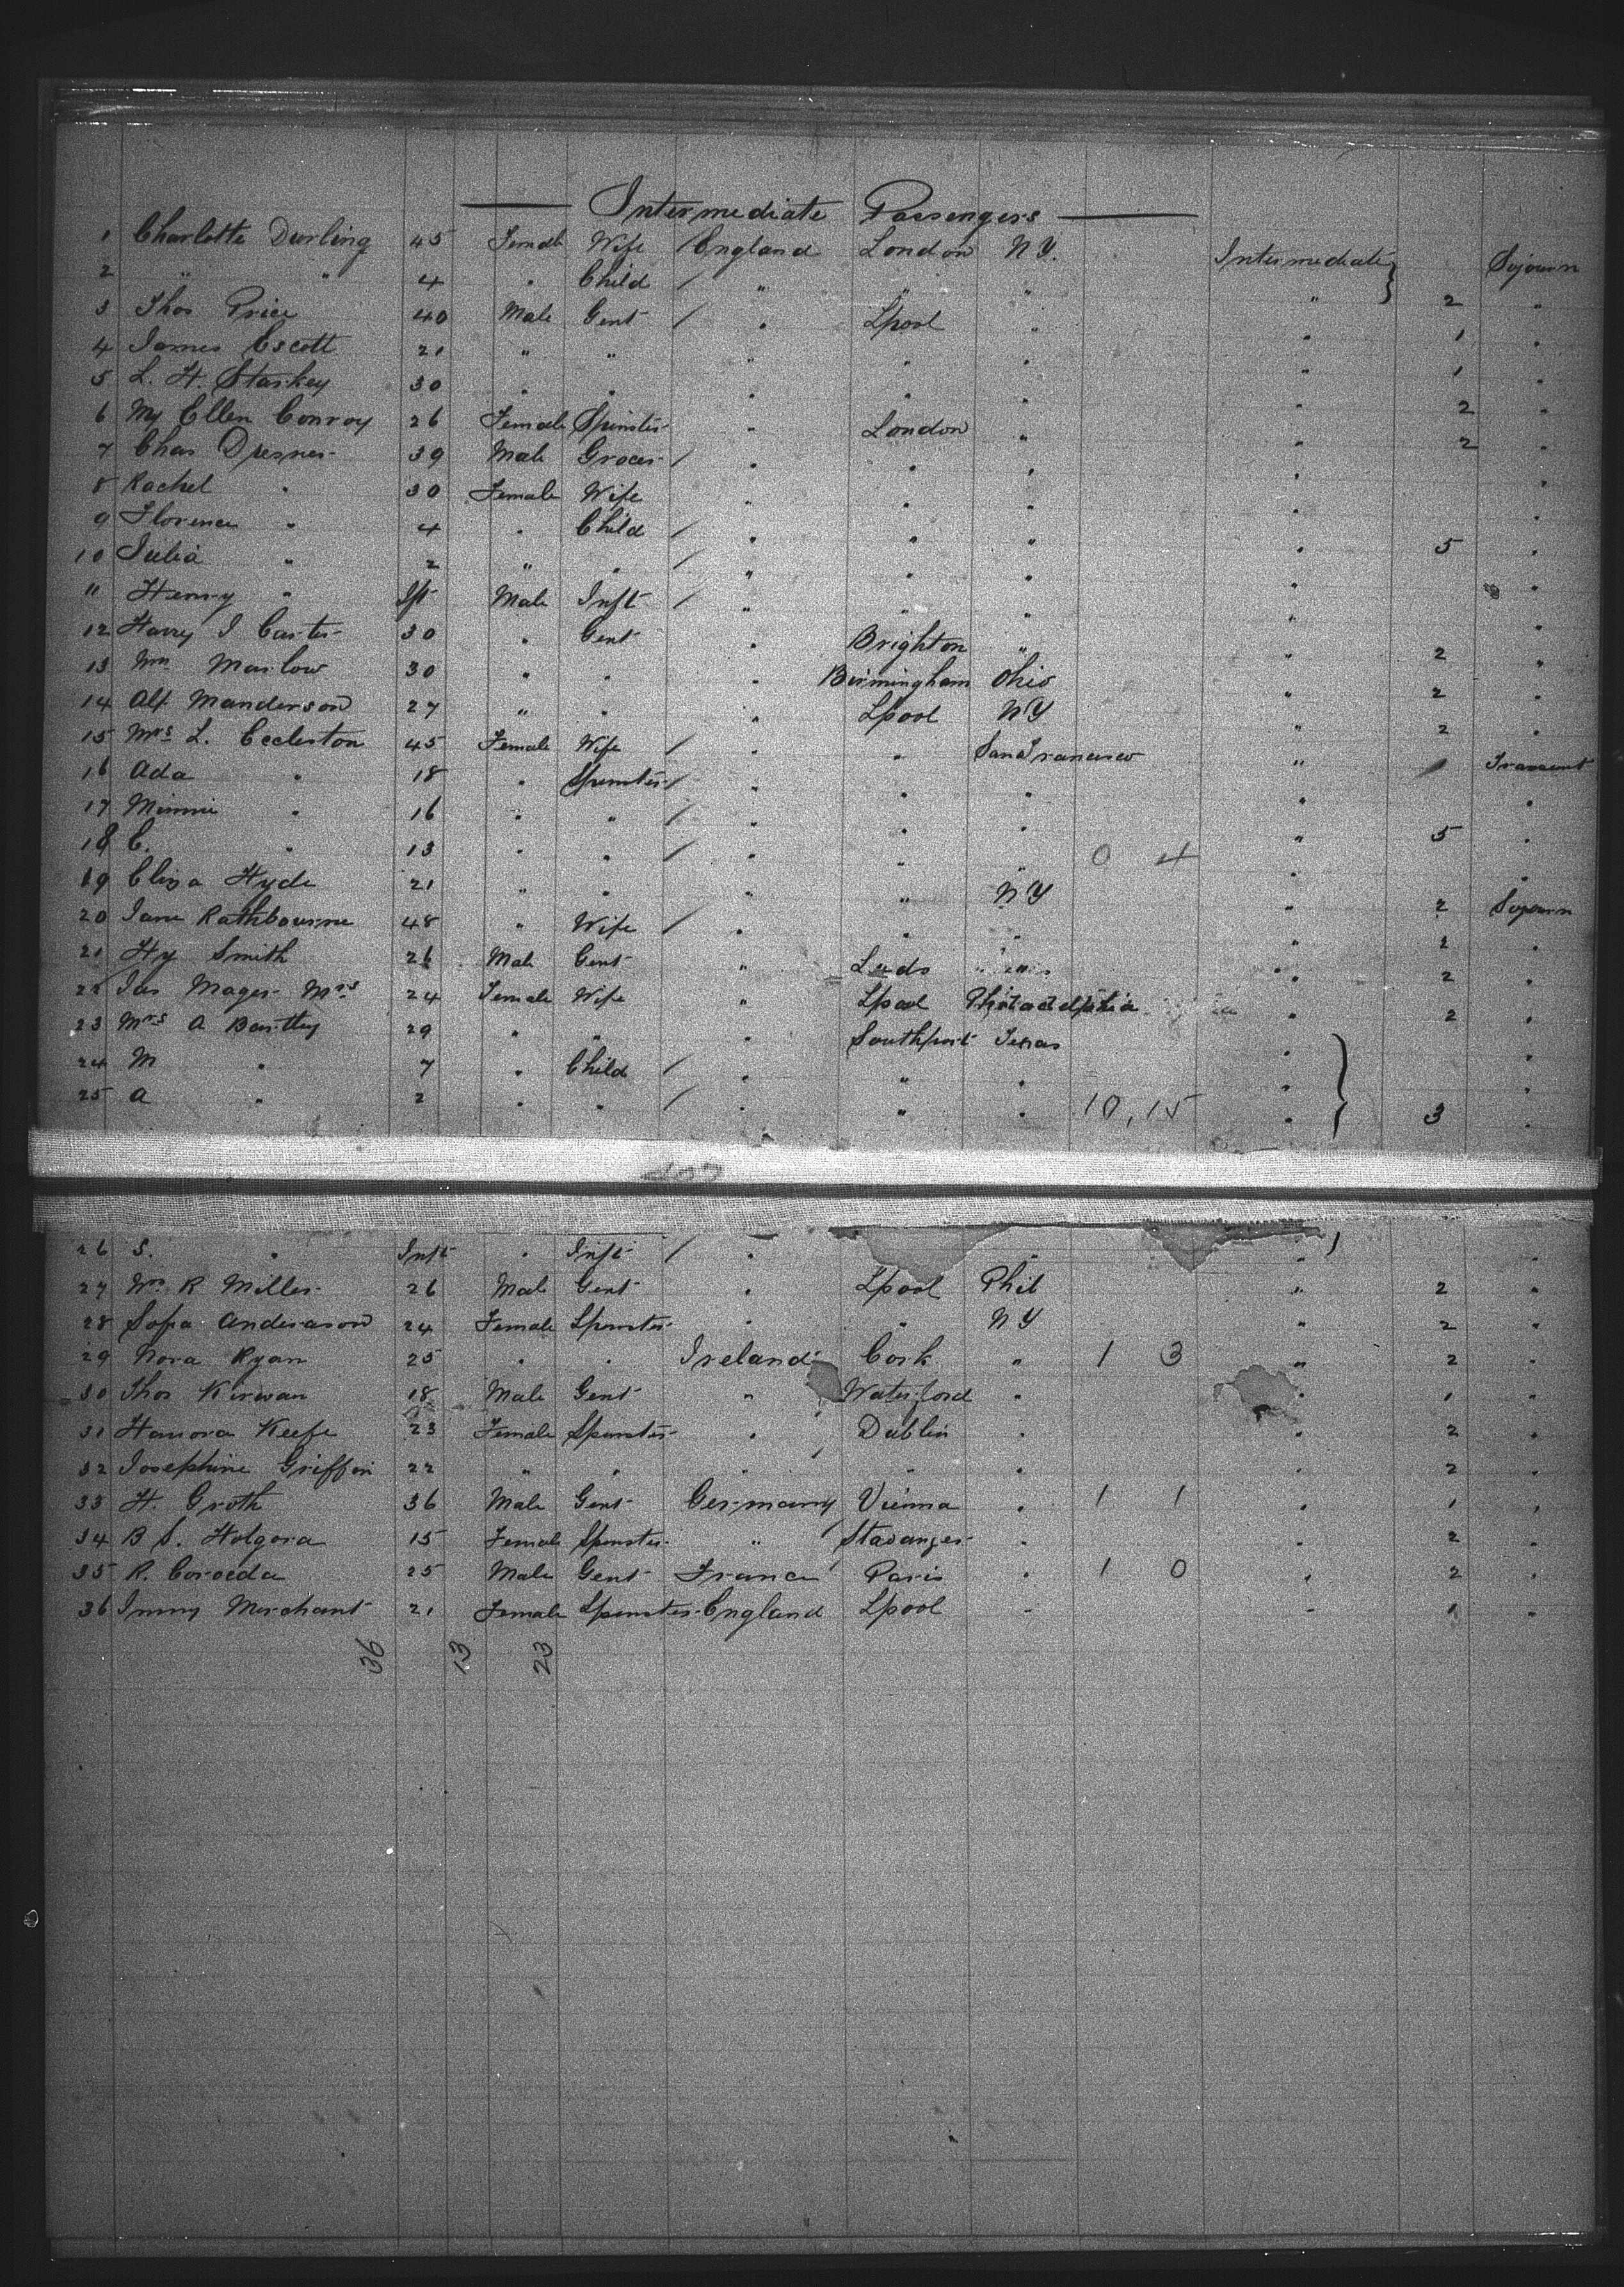 Intermediate Passengers
1 Charlotte Durling 45 Female Wife England London N.Y. Intermediate Sojourn
2 " " 4 " Child / " " " " 2 "
3 Thos Price 40 Male Gent / " Lpool " " 1 "
4 James Escott 21 " " " " " " 1 "
5 L. H. Starkey 30 " " " " " " 2 "
6 My Ellen Conroy 26 Female Spinster " London " " 2 "
7 Chas Dresner 39 Male Grocer / " " " " "
8 Rachel " 30 Female Wife " " " " "
9 Florence " 4 " Child / " " " " 5 "
10 Julia " 2 " " / " " " " "
11 Henry " Ift Male Inft / " " " " "
12 Harry J Carter 30 " Gent " Brighton " " 2 "
13 Wm Marlow 30 " " " Birmingham Ohio " 2 "
14 Alf Manderson 27 " " " Lpool NY " 2 "
15 Mrs L. Eccleston 45 Female Wife / " " San Francisco " Transient
16 Ada " 18 " Spinster / " " " " "
17 Minnie " 16 " " / " " " " 5 "
18 C. " 13 " " / " " " 0 4 " "
19 Eliza Hyde 21 " " " " NY " 2 Sojourn
20 Jane Rathbourne 48 " Wife / " " " " 2 "
21 Hy Smith 26 Male Gent " Leeds " " 2 "
22 Jas Mager Mrs 24 Female Wife " Lpool Philadelphia " 2 "
23 Mrs A Bartley 29 " " " Southport Texas " "
24 M " 7 " Child / " " " " "
25 A " 2 " " / " " " 10, 15 " 3 "
26 S. " Inft " Inft / " " " "
27 Wm R Miller 26 Male Gent " Lpool Phil " 2 "
28 Sofa Anderason 24 Female Spinster " " NY " 2 "
29 Nora Ryan 25 " " Ireland Cork " 1 3 " 2 "
30 Thos Kirwan 18 Male Gent " Waterford " " 1 "
31 Hanora Keefe 23 Female Spinster " Dublin " " 2 "
32 Josephine Griffin 22 " " " " " " 2 "
33 H. Groth 36 Male Gent Germany Vienna " 1 1 " 1 "
34 B S. Holgora 15 Female Spinster " Stavanger " " 2 "
35 R. Coroeda 25 Male Gent France Paris " 1 0 " 2 "
36 Merchant 21 Female Spinster England Lpool " " 1 "
36 13 23